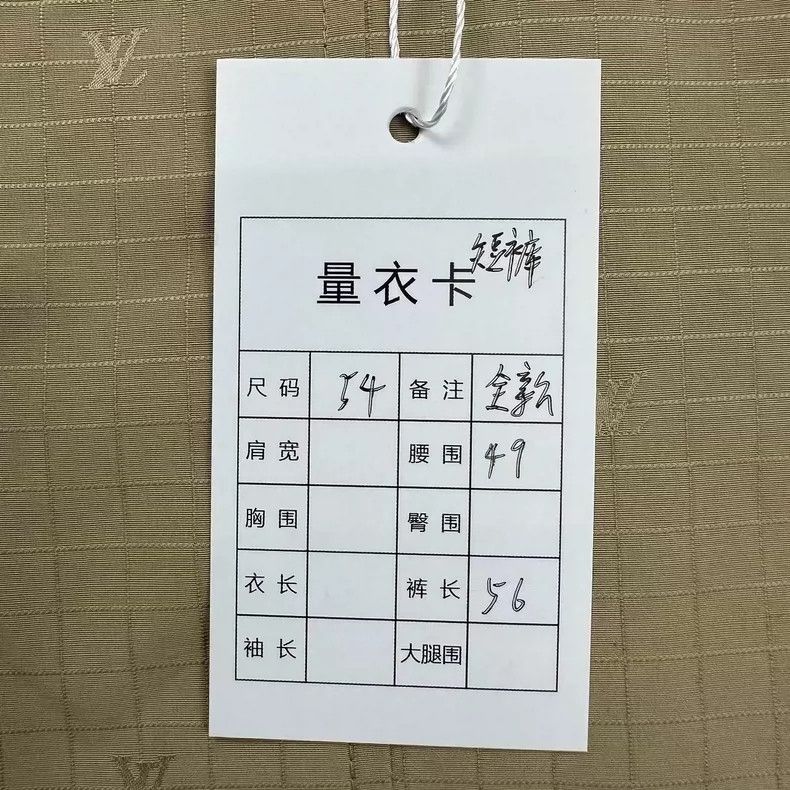 LV
短裤
量衣卡
尺码 54 备注 全新
肩宽 腰围 49
胸围 臀围
衣长 裤长 56
袖长 大腿围
LV